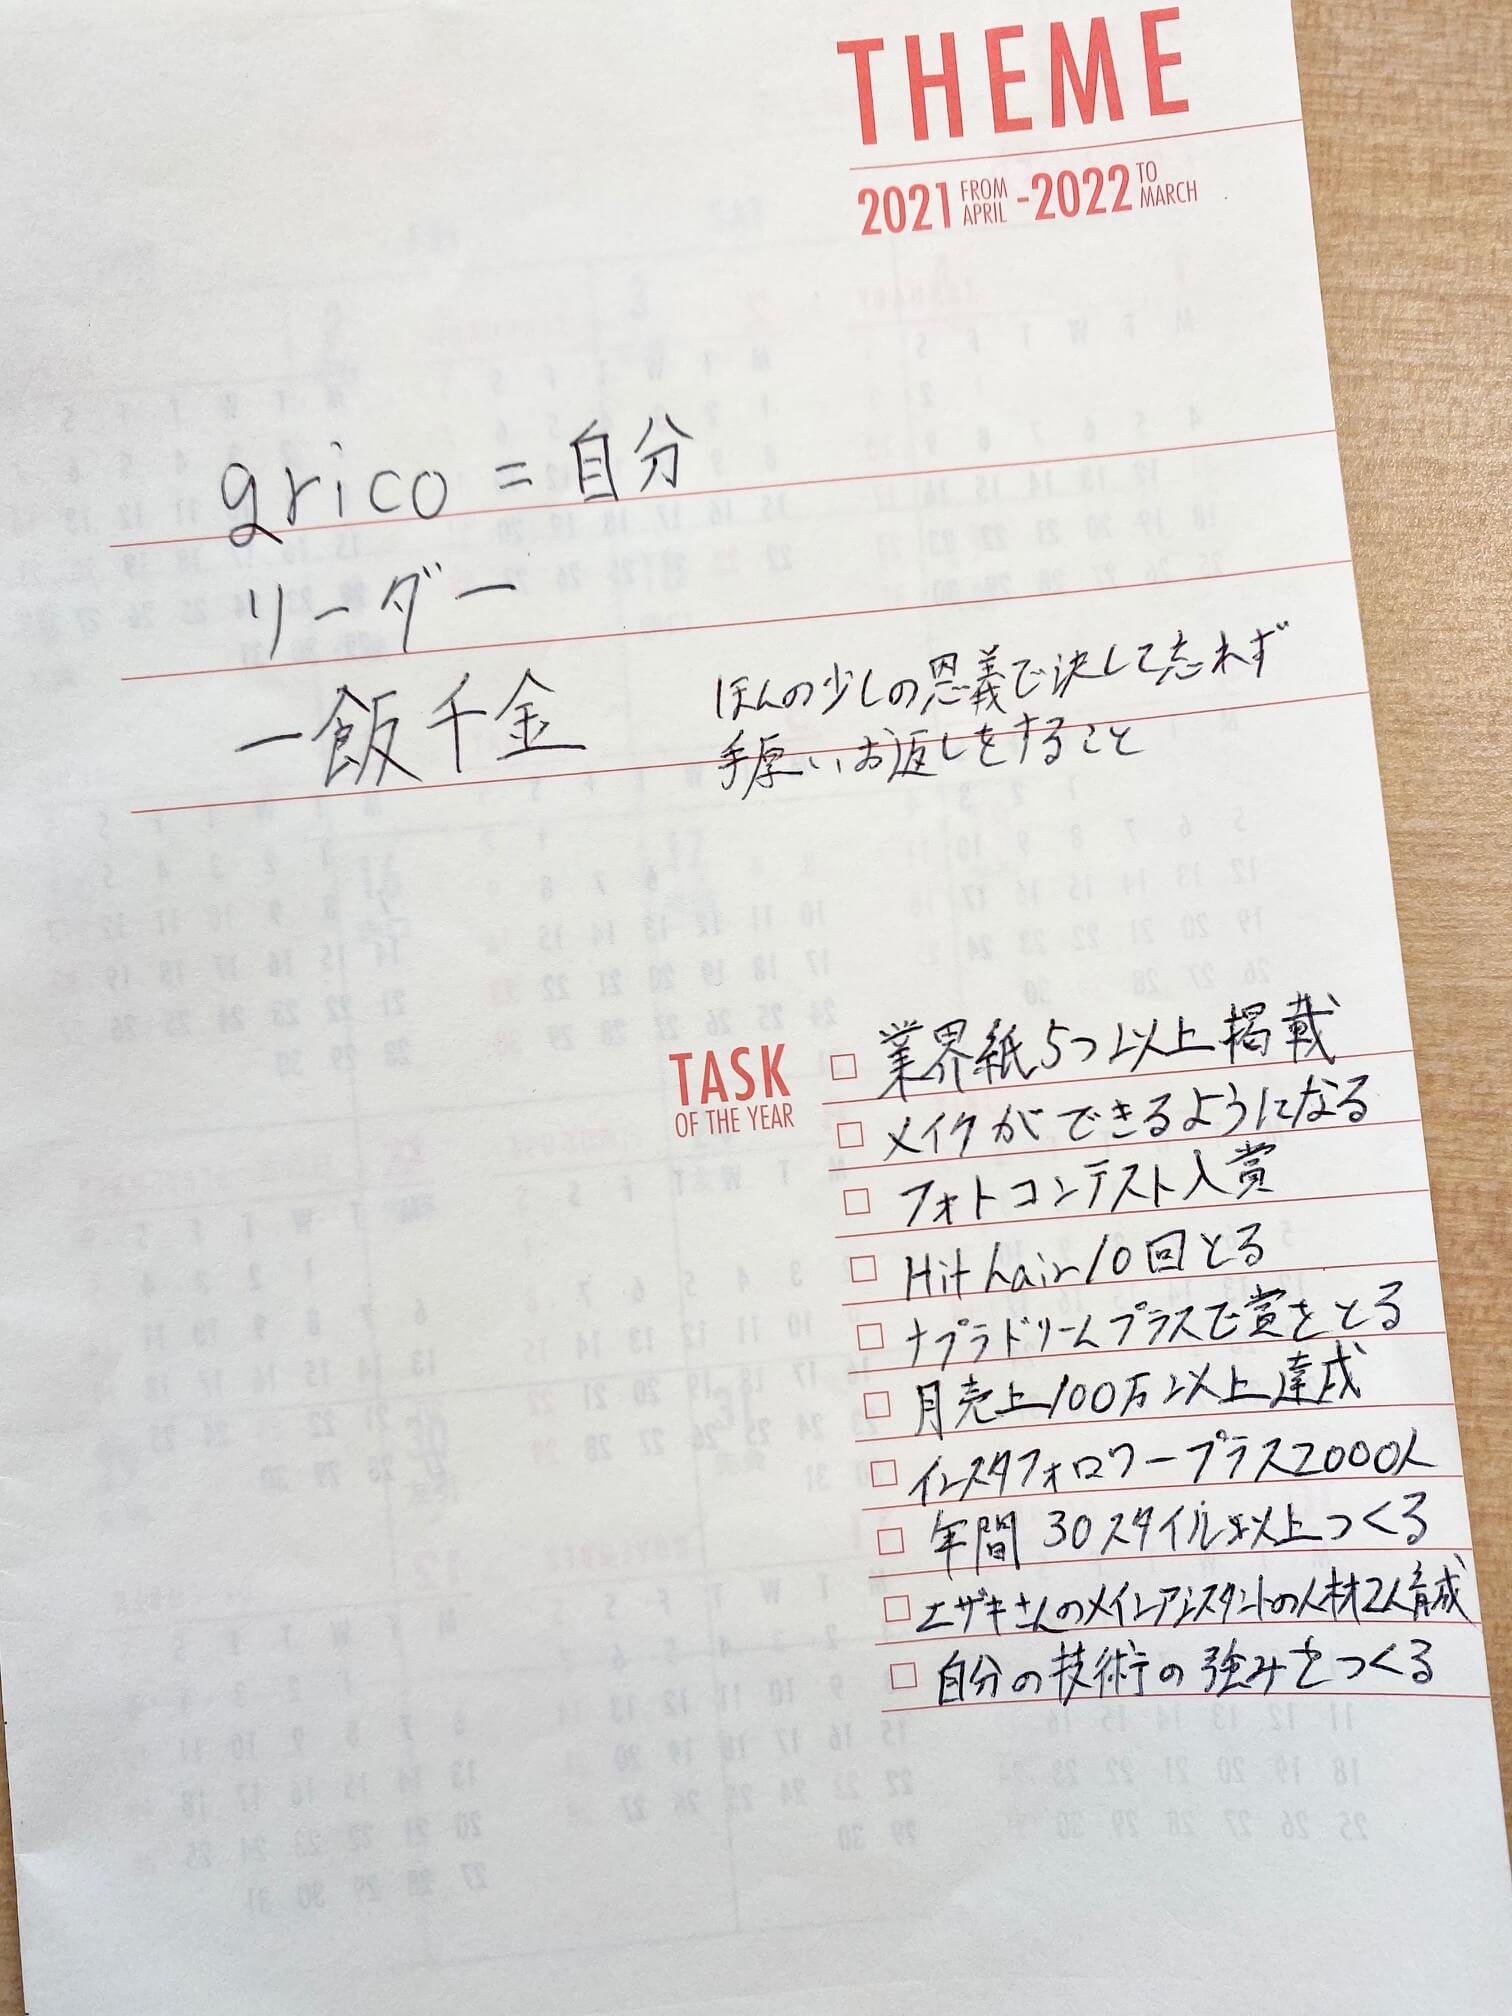 THEME
2021 FROM APRIL -2022 TO MARCH
grico = 自分
リーダー
一飯千金
ほんの少しの恩義で決して忘れず
手厚いお返しをすること
TASK
OF THE YEAR
□ 業界紙5つ以上掲載
□ メイクができるようになる
□ フォトコンテスト入賞
□ Hit hair 10回とる
□ ナプラドリームプラスで賞をとる
□ 月売上100万以上達成
□ インスタフォロワープラス2000人
□ 年間30スタイル以上つくる
□ エザキさんのメインアシスタントの人材2人育成
□ 自分の技術の強みをつくる